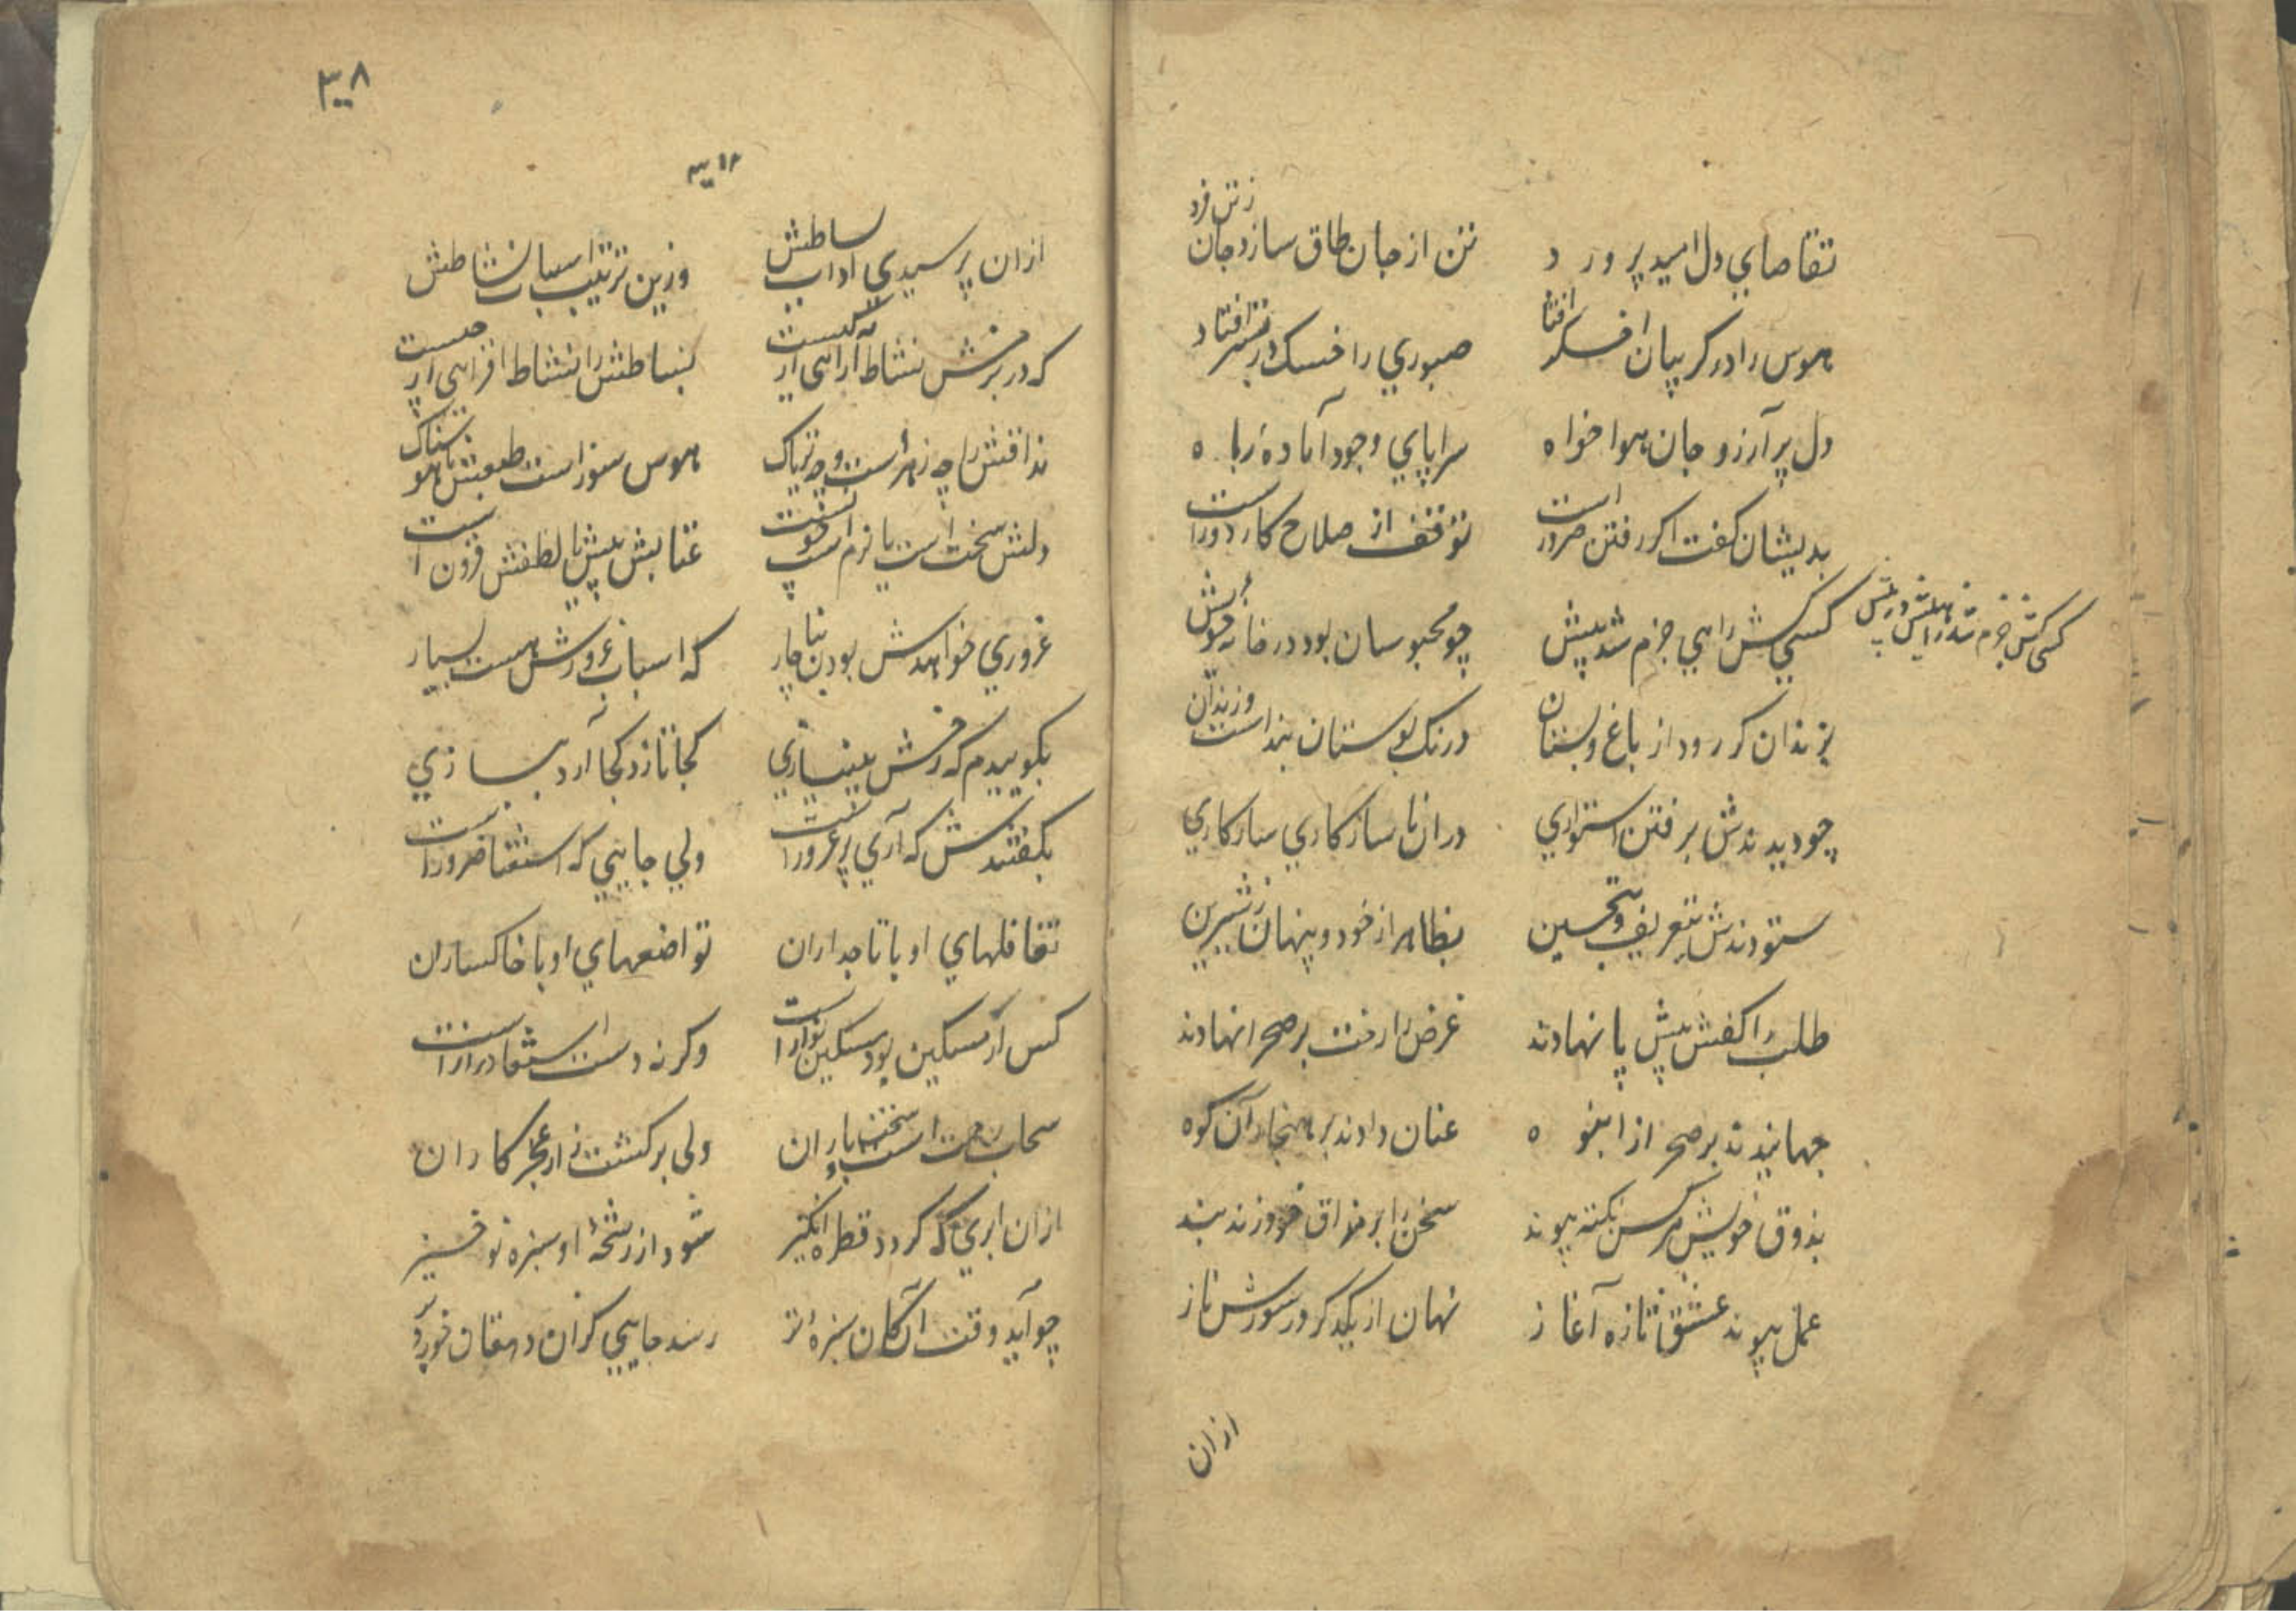 تقاضاي دل امید پرورد
تن از جان طاق سازد جان ز تن فرد
هوس را در کریبان اخسکر افتاد
صبوري را خسک در بستر افتاد
دل پر آرزو جان هوا خواه
سراپاي وجود آمادهٔ راه
بدیشان کفت اکر رفتن ضرور است
توقف از صلاح کار دور است
کسي کش راهي جزم شد پیش
چو محبوسان بود در خانهٔ خویش
کسی کش جزم شد راهیش در پیش
بزندان کر رود از باغ و بستان
درنک بوستان بند است و زندان
چو دیدندش برفتن استواري
در ان ناسازکاري سازکاري
ستودندش بتعریف و تحسین
بظاهر از خود و پنهان ز شیرین
طلب را کفش پیش پا نهادند
غرض را رخت بر صحرا نهادند
جهانیدند بر صحرا ز انبوه
عنان دادند بر هنجار آن کوه
بذوق خویش هر کس نکته پیوند
سخن را بر مذاق خود زند بند
عمل پیوند عشق تازه آغاز
نهان از یکدکر در سوزش ناز
ازان
۳۰۸
ازان پرسیدي اداب بساطش
وزین ترتیب اسباب نشاطش
که در بزمش نشاط آراهی از کیست
بساطش را نشاط افزاهی از چیست
مذاقش را چه زهر است و چه تریاک
هوس سوز است طبعش یا هوسناک
دلش سخت است یا نرم است خویش
عتابش بیش یا لطفش فزون است
غروري خواهدش بودن بناچار
که اسباب غرورش هست بسیار
بکوییدم که رخش بینیازي
کجا تازد کجا آرد ببازي
بکفتندش که آري پر غرور است
ولي جایي که استغنا ضرور است
تغافلهاي او با تاجداران
تواضعهاي او با خاکساران
کس ار مسکین بود مسکین نواز است
وکرنه دست استغنا دراز است
سحاب رحمت است سخت باران
ولی بر کشت زار عجز کاران
ازان ابري که کردد قطره انکیز
شود از رشحهٔ او سبزه نو خیز
چو آید وقت آن کان سبزهٔ تر
رسد جایي کزان دهقان خورد بر